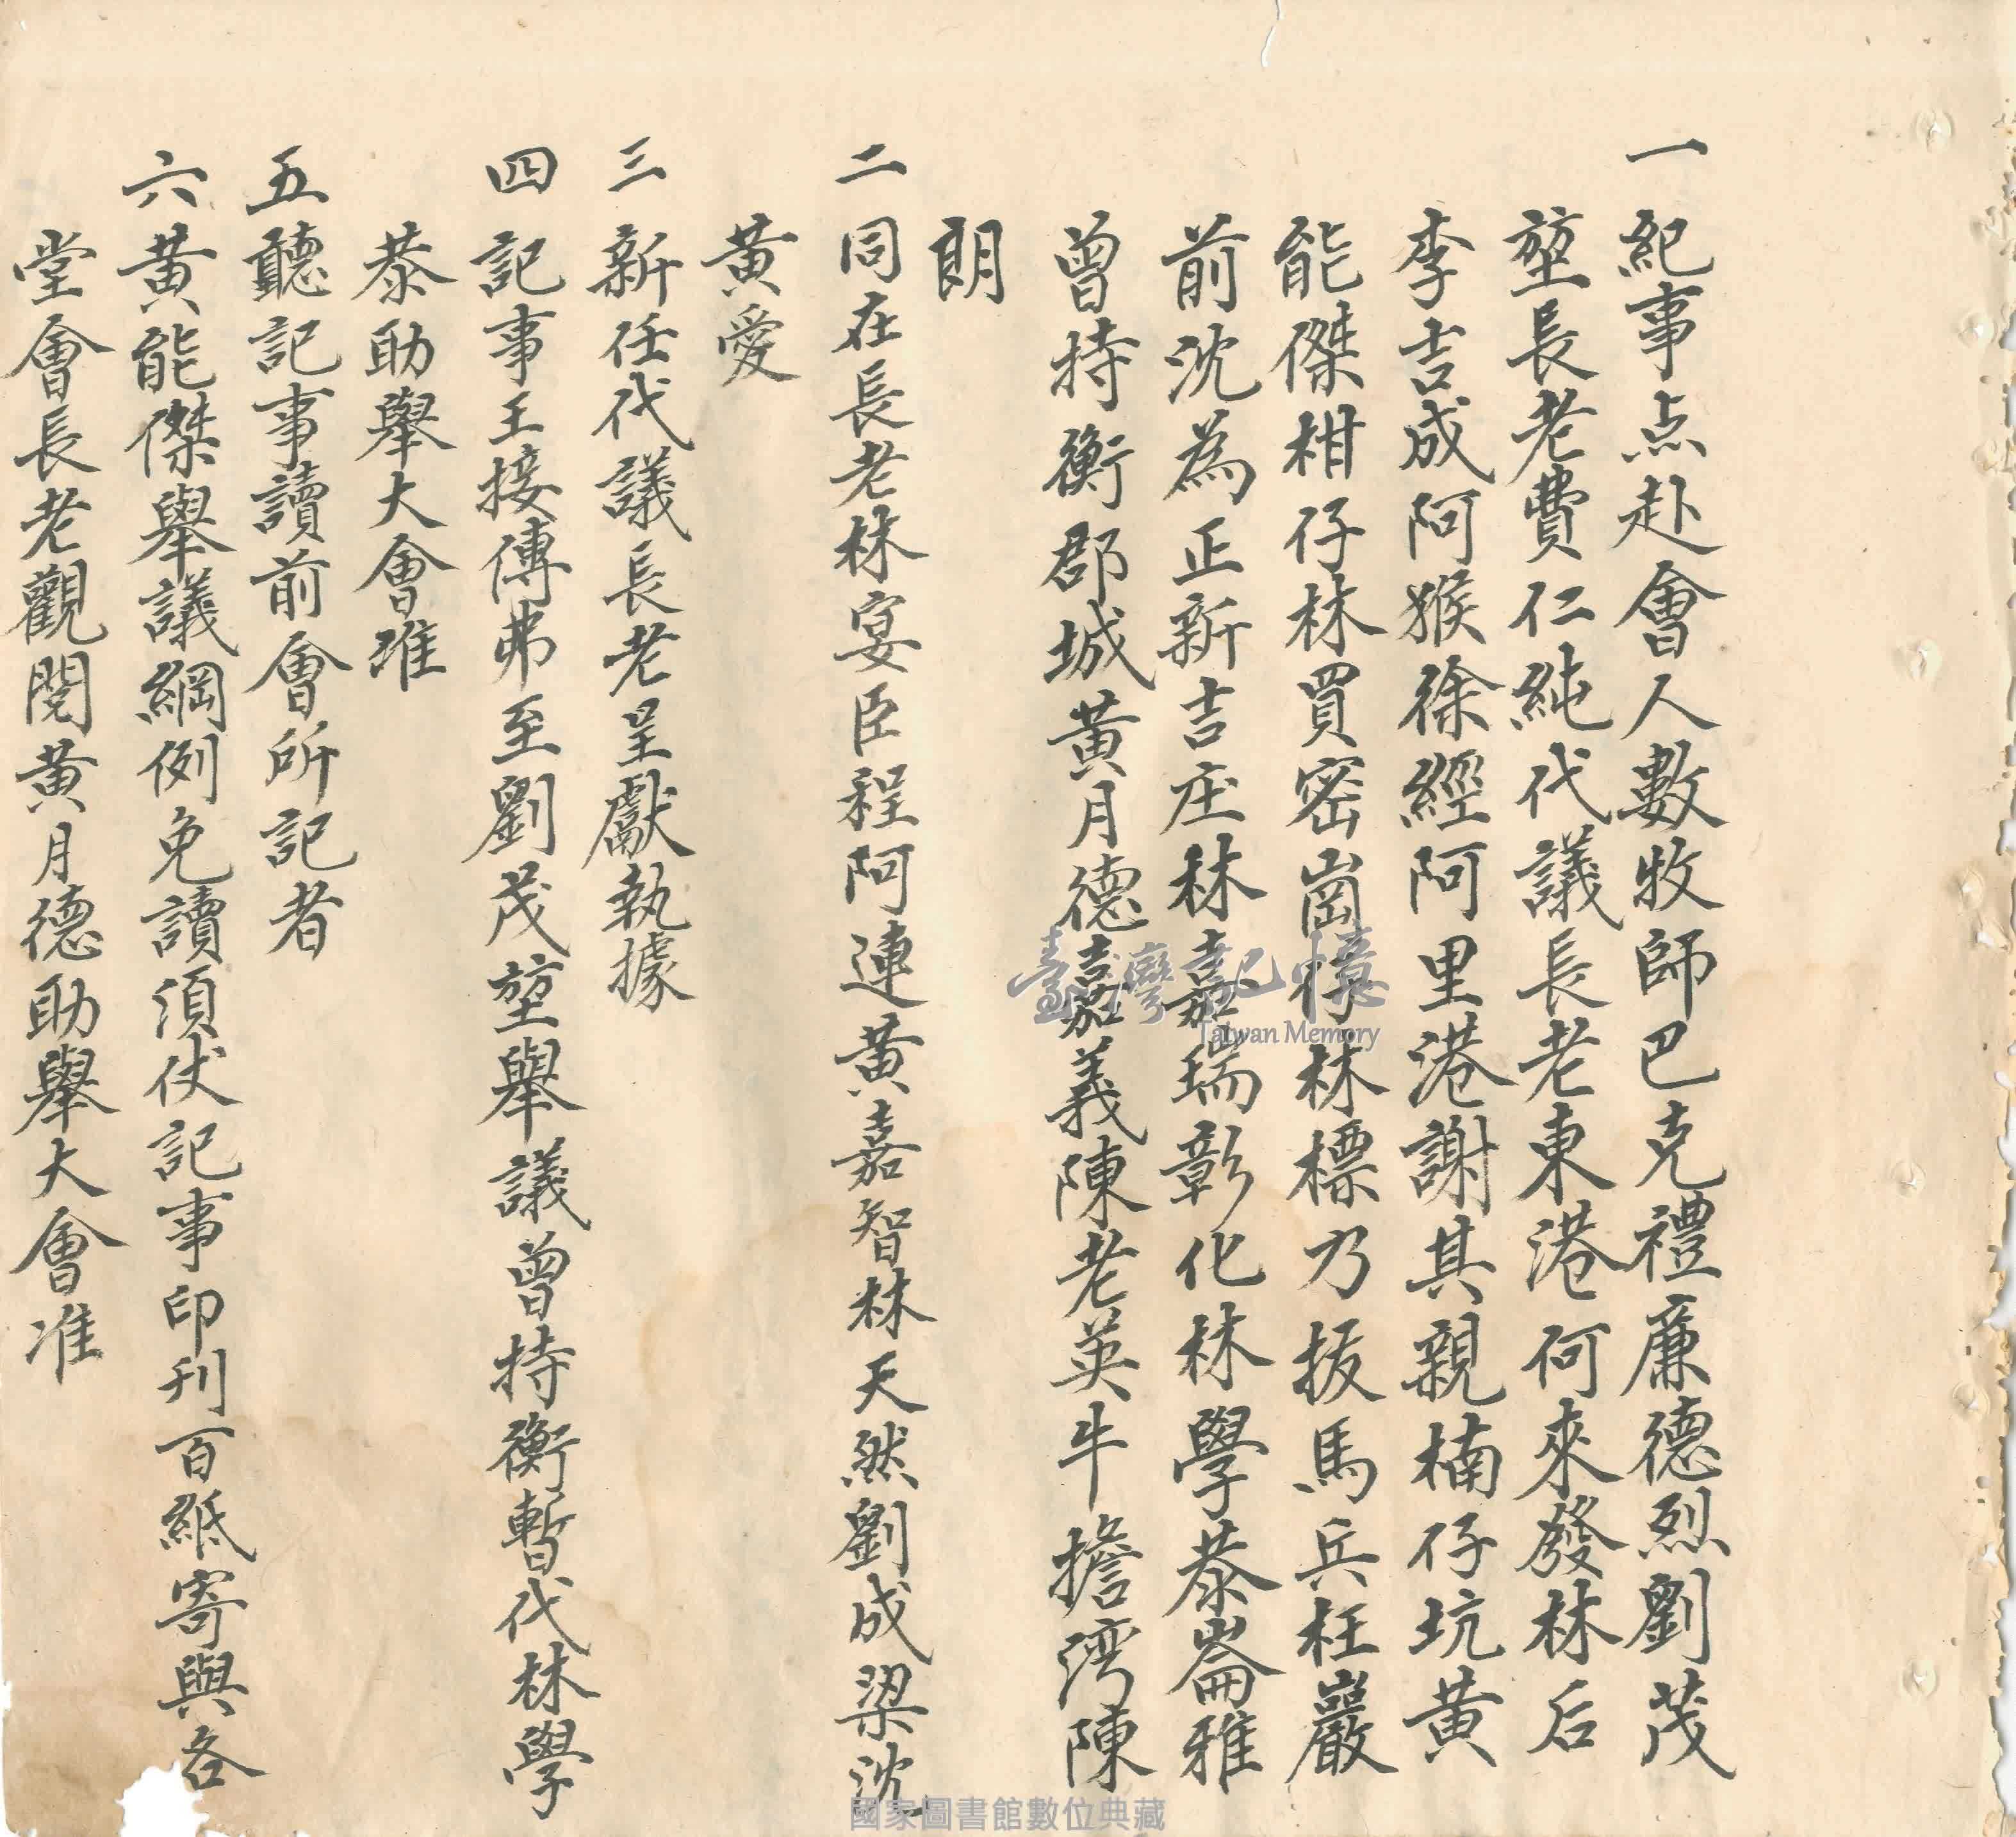 一紀事点赴會人數牧師巴克禮廉德烈劉茂
堃長老費仁純代議長老東港何來發林后
李吉成阿猴徐經阿里港謝其親楠仔坑黃
能傑柑仔林買密崗林標乃拔馬兵枉巖
前沈為正新吉庄林嘉瑞彰化林學恭崙雅
曾持衡郡城黃月德嘉義陳老英牛擔湾陳
朗
二同在長老林宴臣程阿連黃嘉智林天然劉成梁沈
黃愛
三新任代議長老呈獻執據
四記事王接傳弗至劉茂堃舉議曾持衡暫代林學
恭助舉大會准
五聽記事讀前會所記者
六黃能傑舉議綱例免讀須伏記事印刊百紙寄與各
堂會長老觀閱黃月德助舉大會准
臺灣記憶
Taiwan Memory
國家圖書館數位典藏